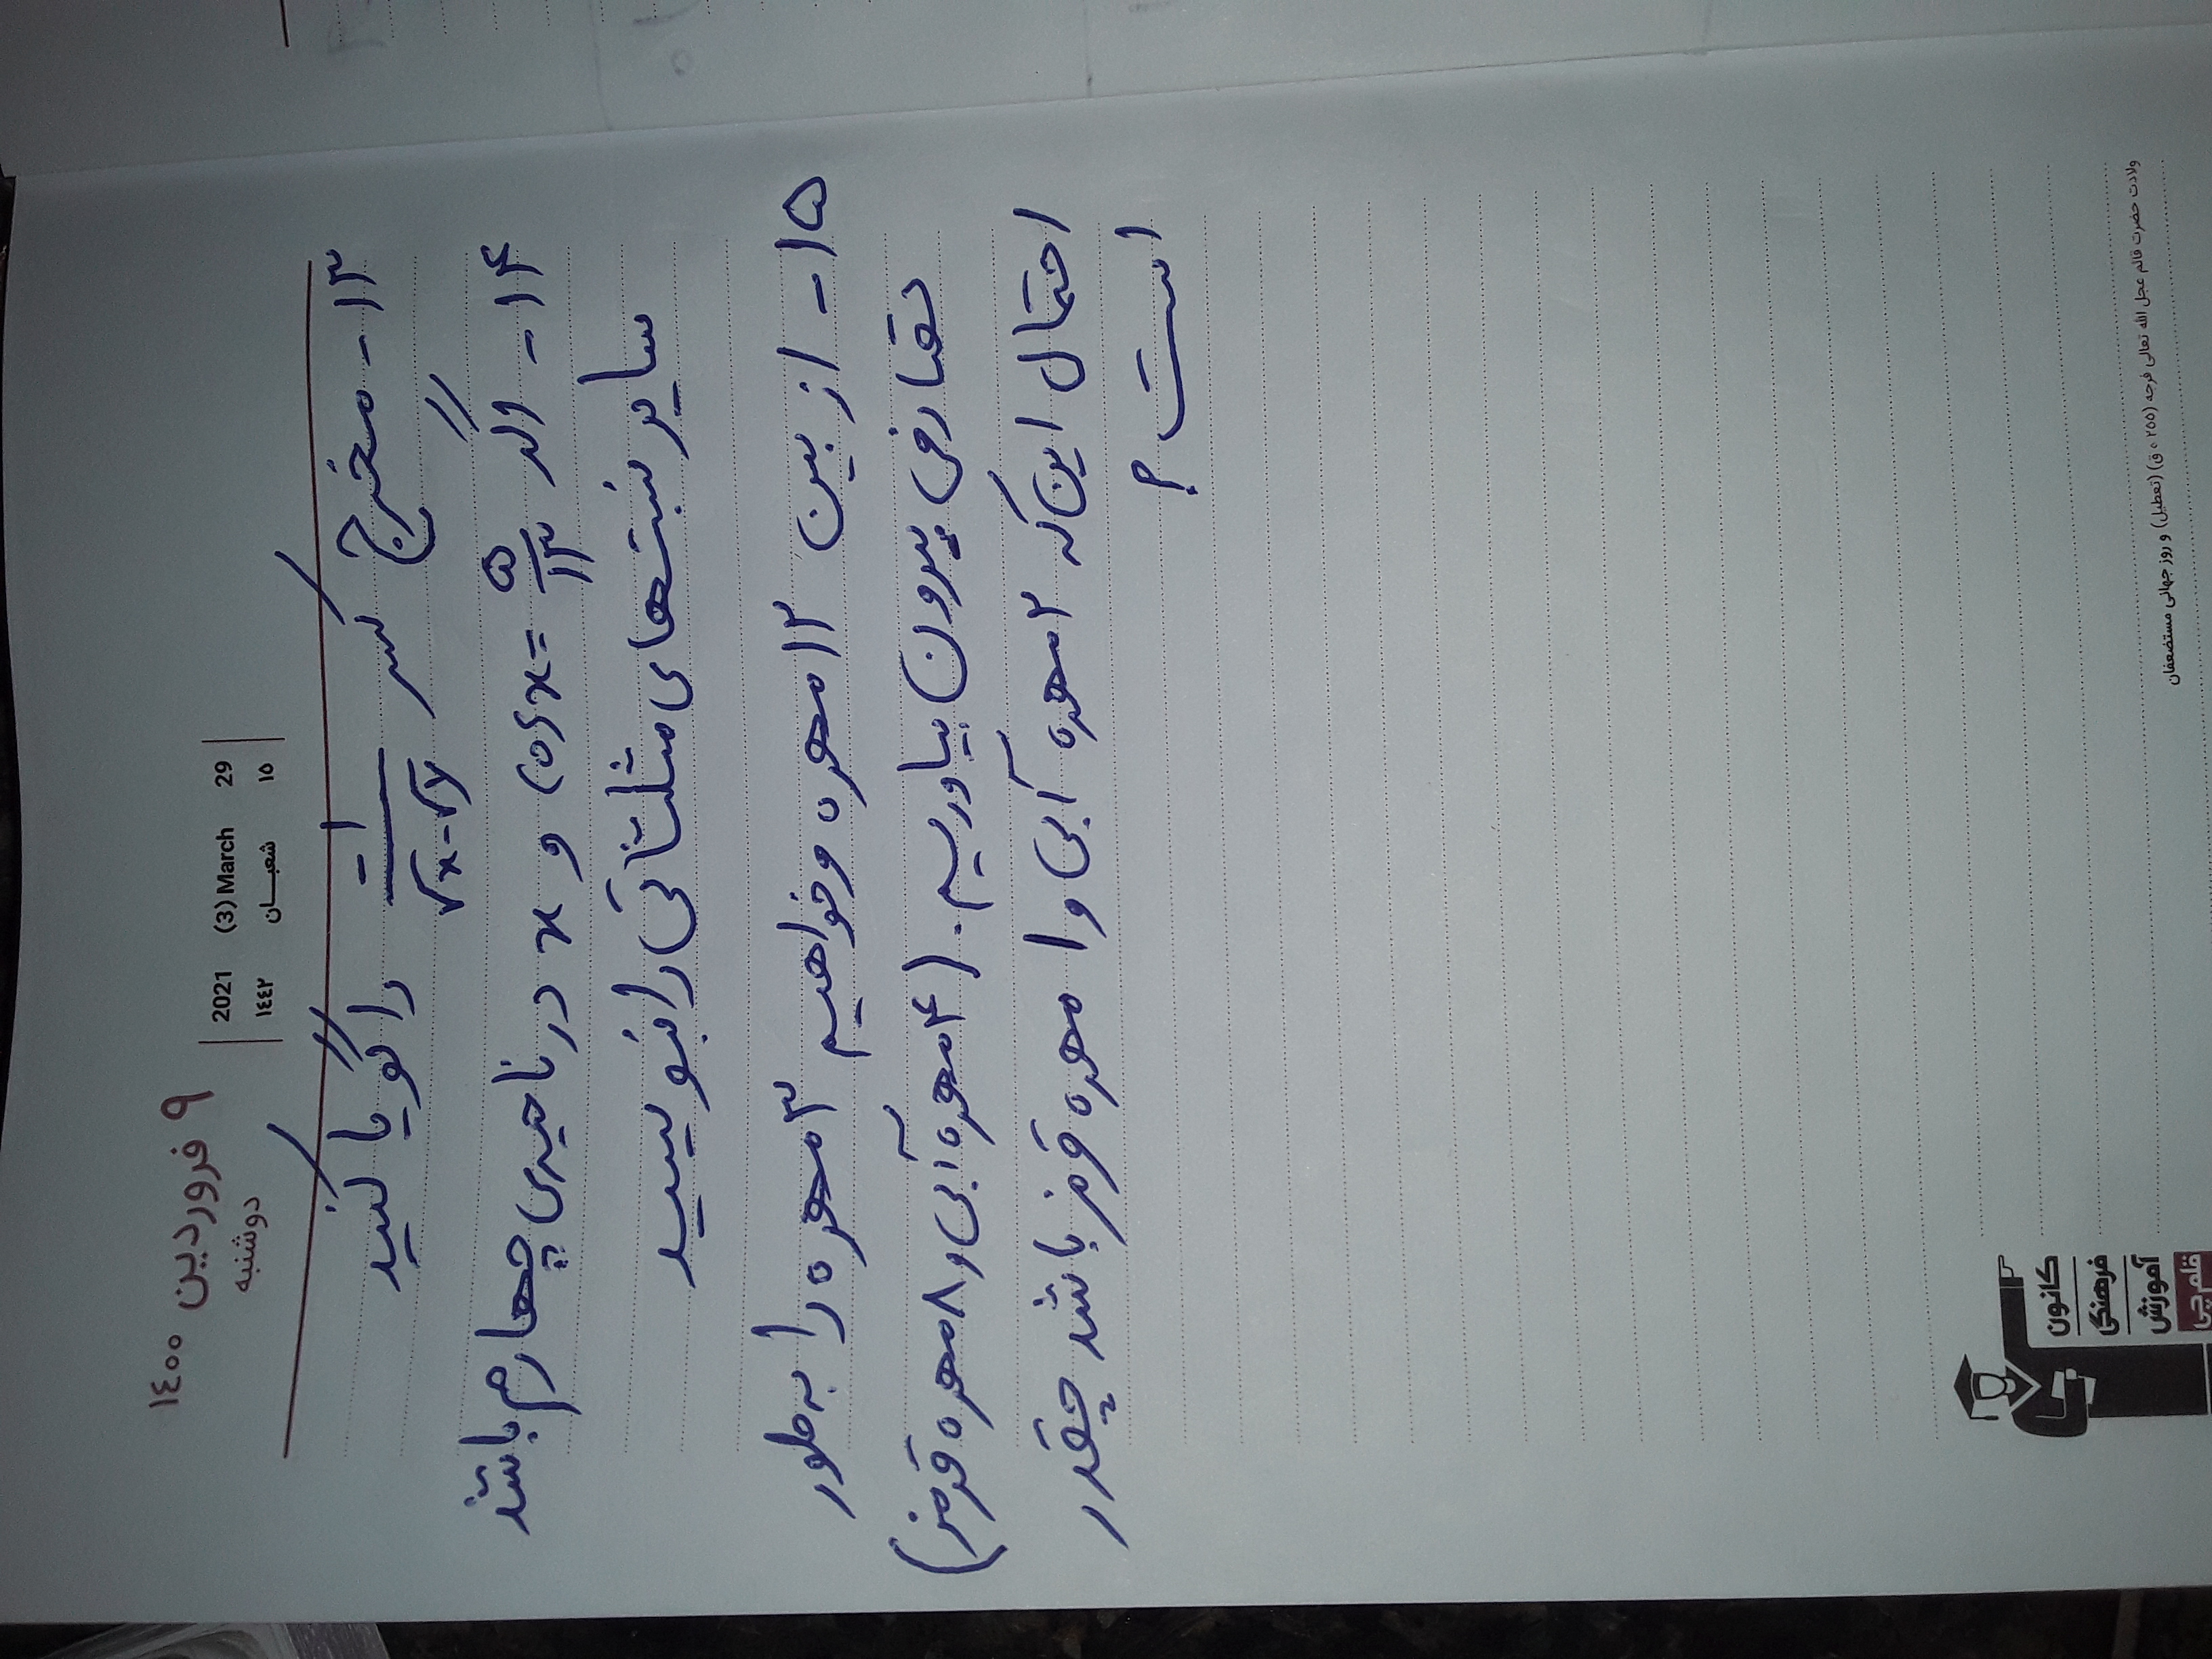 ۹ فروردین ۱۴۰۰
دوشنبه
2021 (3) March 29
۱۵ شعبـــان ۱٤٤۲
۱۳- مخرج کسر ۱-/√x-√y را گویا کنید
۱۴- اگر cosx = ۵/۱۳ و x در ناحیه‌ی چهارم باشد
سایر نسبت‌های مثلثاتی را بنویسید
۱۵- از بین ۱۲ مهره می‌خواهیم ۳ مهره را به طور
تصادفی بیرون بیاوریم. (۴ مهره آبی و ۸ مهره قرمز)
احتمال این که ۲ مهره آبی و ۱ مهره قرمز باشد چقدر
است؟
کانون
فرهنگی
آموزش
قلم‌چی
ولادت حضرت قائم عجل الله تعالی فرجه (۲۵۵ ه ق) (تعطیل) و روز جهانی مستضعفان